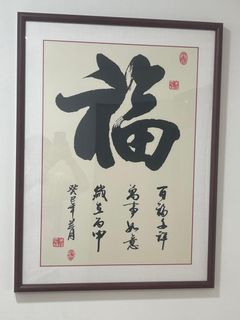 福
百福千祥
萬事如意
歲在丙申
癸巳年